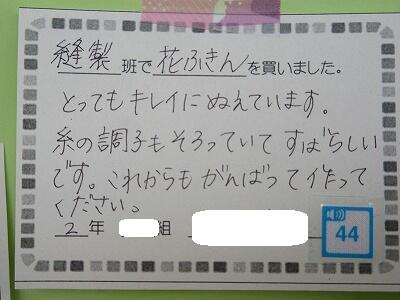 縫製班で花ふきんを買いました。
とってもキレイにぬえています。
糸の調子もそろっていてすばらしい
です。これからもがんばって作って
ください。
2年 組
44